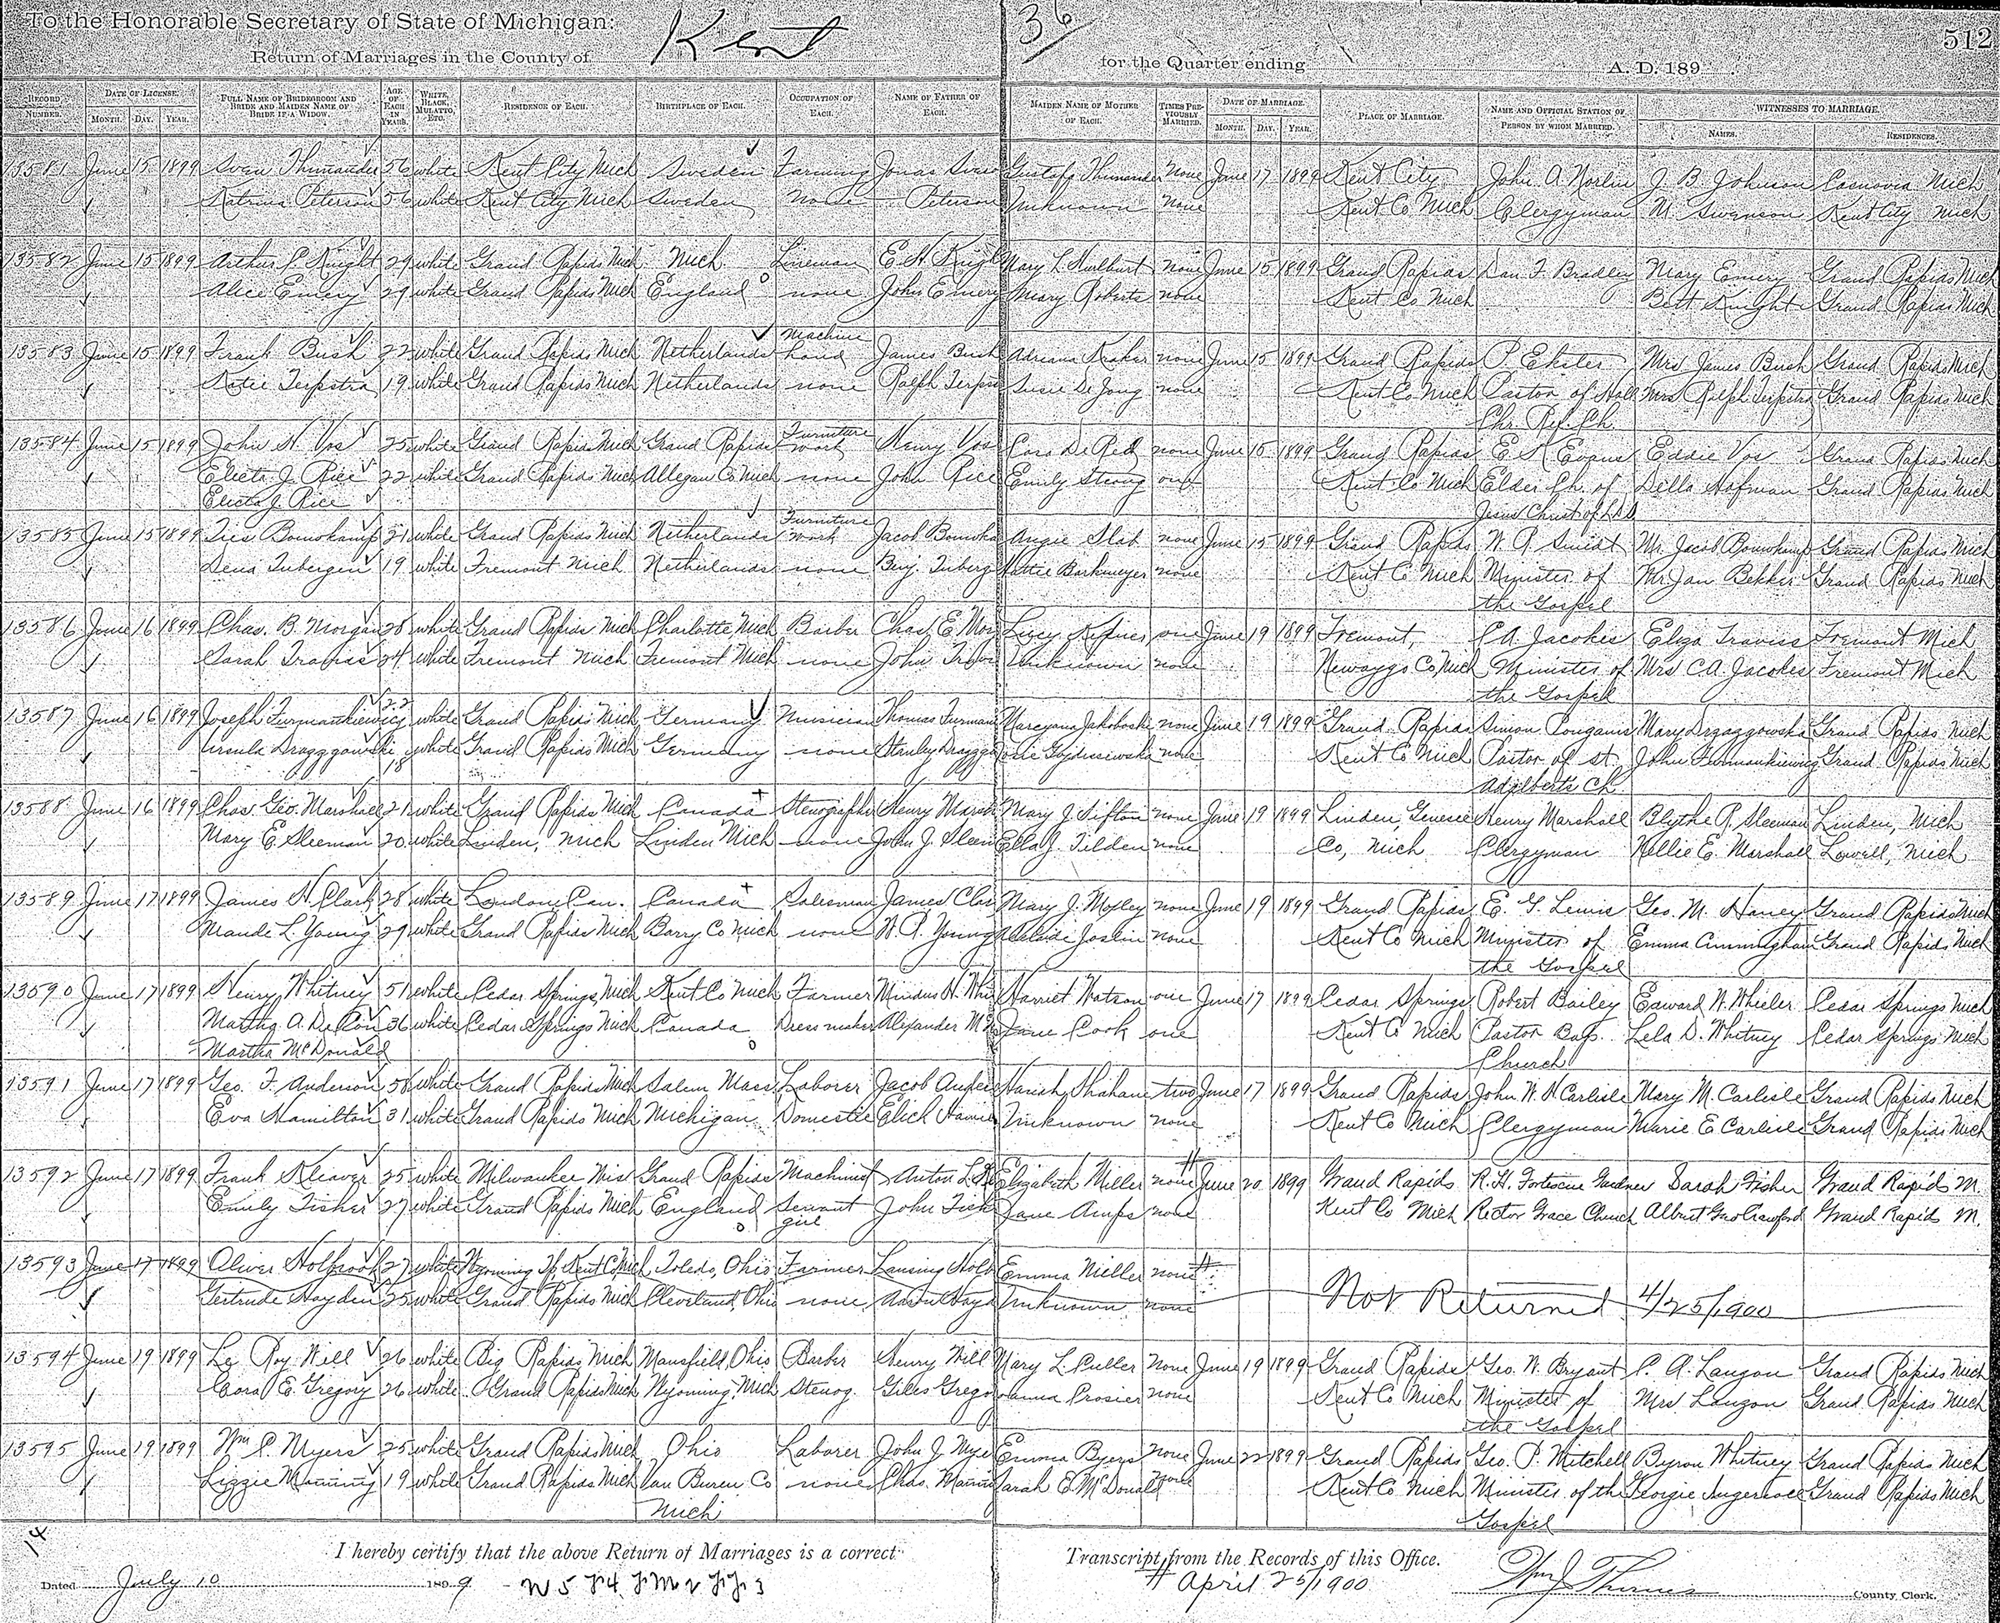 To the Honorable Secretary of State of Michigan:
Return of Marriages in the County of Kent 36 for the Quarter ending A. D. 189
512
RECORD NUMBER. DATE OF LICENSE. MONTH. DAY. YEAR. FULL NAME OF BRIDEGROOM AND BRIDE AND MAIDEN NAME OF BRIDE IF A WIDOW. AGE OF EACH IN YEARS. WHITE, BLACK, MULATTO, ETC. RESIDENCE OF EACH. BIRTHPLACE OF EACH. OCCUPATION OF EACH. NAME OF FATHER OF EACH. MAIDEN NAME OF MOTHER OF EACH. TIMES PREVIOUSLY MARRIED. DATE OF MARRIAGE. MONTH. DAY. YEAR. PLACE OF MARRIAGE. NAME AND OFFICIAL STATION OF PERSON BY WHOM MARRIED. WITNESSES TO MARRIAGE. NAMES. RESIDENCES.
13581 June 15 1899 Sven Thunander 56 white Kent City Mich Sweden Farming Jonas Gustaff Thunander none June 17 1899 Kent City John A. Norlin J. B. Johnson Casnovia Mich
Katrina Peterson 56 white Kent City Mich Sweden none Peterson Unknown none Kent Co Mich Clergyman M. Swenson Kent City Mich
13582 June 15 1899 Arthur C. Knight 29 white Grand Rapids Mich Mich Lineman E. H. Knigh Mary L Hurlburt none June 15 1899 Grand Rapids Dan F. Bradley Mary Emery Grand Rapids Mich
Alice Emery 29 white Grand Rapids Mich England none John Emery Mary Roberts none Kent Co Mich Bert Knight Grand Rapids Mich
13583 June 15 1899 Frank Bush 22 white Grand Rapids Mich Netherlands Machine hand James Bush Adriana Kraker none June 15 1899 Grand Rapids P. Ekster Mrs James Bush Grand Rapids Mich
Katie Terpstra 19 white Grand Rapids Mich Netherlands none Ralph Terps Susie De Jong none Kent Co Mich Pastor of Holl Mrs Ralph Terpstra Grand Rapids Mich
Chr. Ref. Ch.
13584 June 15 1899 John H. Vos 25 white Grand Rapids Mich Grand Rapids Furniture work Henry Vos Cora De Red none June 15 1899 Grand Rapids E. K. Evans Eddie Vos Grand Rapids Mich
Electa J. Rice 22 white Grand Rapids Mich Allegan Co Mich none John Rice Emily Strong one Kent Co Mich Elder Ch. of Della Hofman Grand Rapids Mich
Electa J. Rice Jesus Christ of L.D.S
13585 June 15 1899 Ties Bomokamp 21 white Grand Rapids Mich Netherlands Furniture work Jacob Bomoka Angie Slab none June 15 1899 Grand Rapids W. R. Smidt Mr. Jacob Bouwkamp Grand Rapids Mich
Dena Tubergen 19 white Fremont Mich Netherlands none Benj. Tuberg Hattie Barkmeyer none Kent Co Mich Minister of Mr. Jan Bekker Grand Rapids Mich
the Gospel
13586 June 16 1899 Chas. B. Morgan 28 white Grand Rapids Mich Charlotte Mich Barber Chas. E Mor Lucy one June 19 1899 Fremont, C. A. Jacokes Eliza Traviss Fremont Mich
Sarah Traviss 24 white Fremont Mich Fremont Mich none John Trav Unknown none Newaygo Co, Mich Minister of Mrs C. A. Jacokes Fremont Mich
the Gospel
13587 June 16 1899 Joseph Furmankiewicz 22 white Grand Rapids Mich Germany Musician Thomas Furman Maryana Jakoboski none June 19 1899 Grand Rapids Simon Ponganis Mary Drzazgowska Grand Rapids Mich
Ursula 18 white Grand Rapids Mich Germany none Stanley none Kent Co Mich Pastor of St. John Furmankiewicz Grand Rapids Mich
Adelberts Ch.
13588 June 16 1899 Chas. Geo. Marshall 21 white Grand Rapids Mich Canada Stenographer Henry Marsh Mary J. Sifton none June 19 1899 Linden, Genesee Henry Marshall Blythe R. Sleeman Linden, Mich
Mary E. Sleeman 20 white Linden, Mich Linden Mich none John J. Sleem Ella J. Tilden none Co, Mich Clergyman Nellie E. Marshall Lowell, Mich
13589 June 17 1899 James H. Clark 28 white London Can. Canada Salesman James Clar Mary J. Mosley none June 19 1899 Grand Rapids E. G. Lewis Geo. M. Haney Grand Rapids Mich
Maude L. Young 29 white Grand Rapids Mich Barry Co Mich none W. R. Young Adelaide Joslin none Kent Co Mich Minister of Emma Cunningham Grand Rapids Mich
the Gospel
13590 June 17 1899 Henry Whitney 51 white Cedar Springs Mich Kent Co Mich Farmer H. Whi Harriet Watson one June 17 1899 Cedar Springs Robert Bailey Edward W. Wheeler Cedar Springs Mich
Martha A. De Con 36 white Cedar Springs Mich Canada Dressmaker Alexander Jane Cook one Kent Co Mich Pastor Bap. Lela D. Whitney Cedar Springs Mich
Martha McDonald Church
13591 June 17 1899 Geo. F. Anderson 58 white Grand Rapids Mich Salem Mass Laborer Jacob Anders Hanah Shahane two June 17 1899 Grand Rapids John W. H Carlisle Mary M. Carlisle Grand Rapids Mich
Eva Hamilton 31 white Grand Rapids Mich Michigan Domestic Unknown none Kent Co Mich Clergyman Marie E Carlisle Grand Rapids Mich
13592 June 17 1899 Frank Kleaver 25 white Milwaukee Wis Grand Rapids Machinist Anton Elizabeth Miller none June 20 1899 Grand Rapids R. H. Fortescue Gairdner Sarah Fisher Grand Rapids M.
Emily Fisher 27 white Grand Rapids Mich England Servant girl John Fish Jane Amps none Kent Co Mich Rector Grace Church Albert Geo Crawford Grand Rapids M.
13593 June 17 1899 Oliver Holbrook 27 white Wyoming Tp, Kent Co Mich Toledo, Ohio Farmer Lansing Holb Emma Miller none
Gertrude Hayden 25 white Grand Rapids Mich Cleveland, Ohio none Aaron Hayd Unknown none Not Returned 4/25/1900
13594 June 19 1899 Le Roy Will 26 white Big Rapids, Mich Mansfield, Ohio Barber Henry Will Mary L. Culler none June 19 1899 Grand Rapids Geo. W. Bryant C. A. Lauzon Grand Rapids Mich
Cora E. Gregory 26 white Grand Rapids Mich Wyoming, Mich Stenog. Giles Grego Crosier none Kent Co Mich Minister of Mrs Lauzon Grand Rapids Mich
the Gospel
13595 June 19 1899 Wm C. Myers 25 white Grand Rapids Mich Ohio Laborer John J. Mye Emma Byers none June 22 1899 Grand Rapids Geo. P. Mitchell Byron Whitney Grand Rapids Mich
Lizzie Manning 19 white Grand Rapids Mich Van Buren Co none Chas. Manni Sarah E. McDonald none Kent Co Mich Minister of the Georgie Ingersoll Grand Rapids Mich
Mich Gospel
14
I hereby certify that the above Return of Marriages is a correct Transcript from the Records of this Office.
Dated July 10 1899
# April 25/1900
County Clerk.